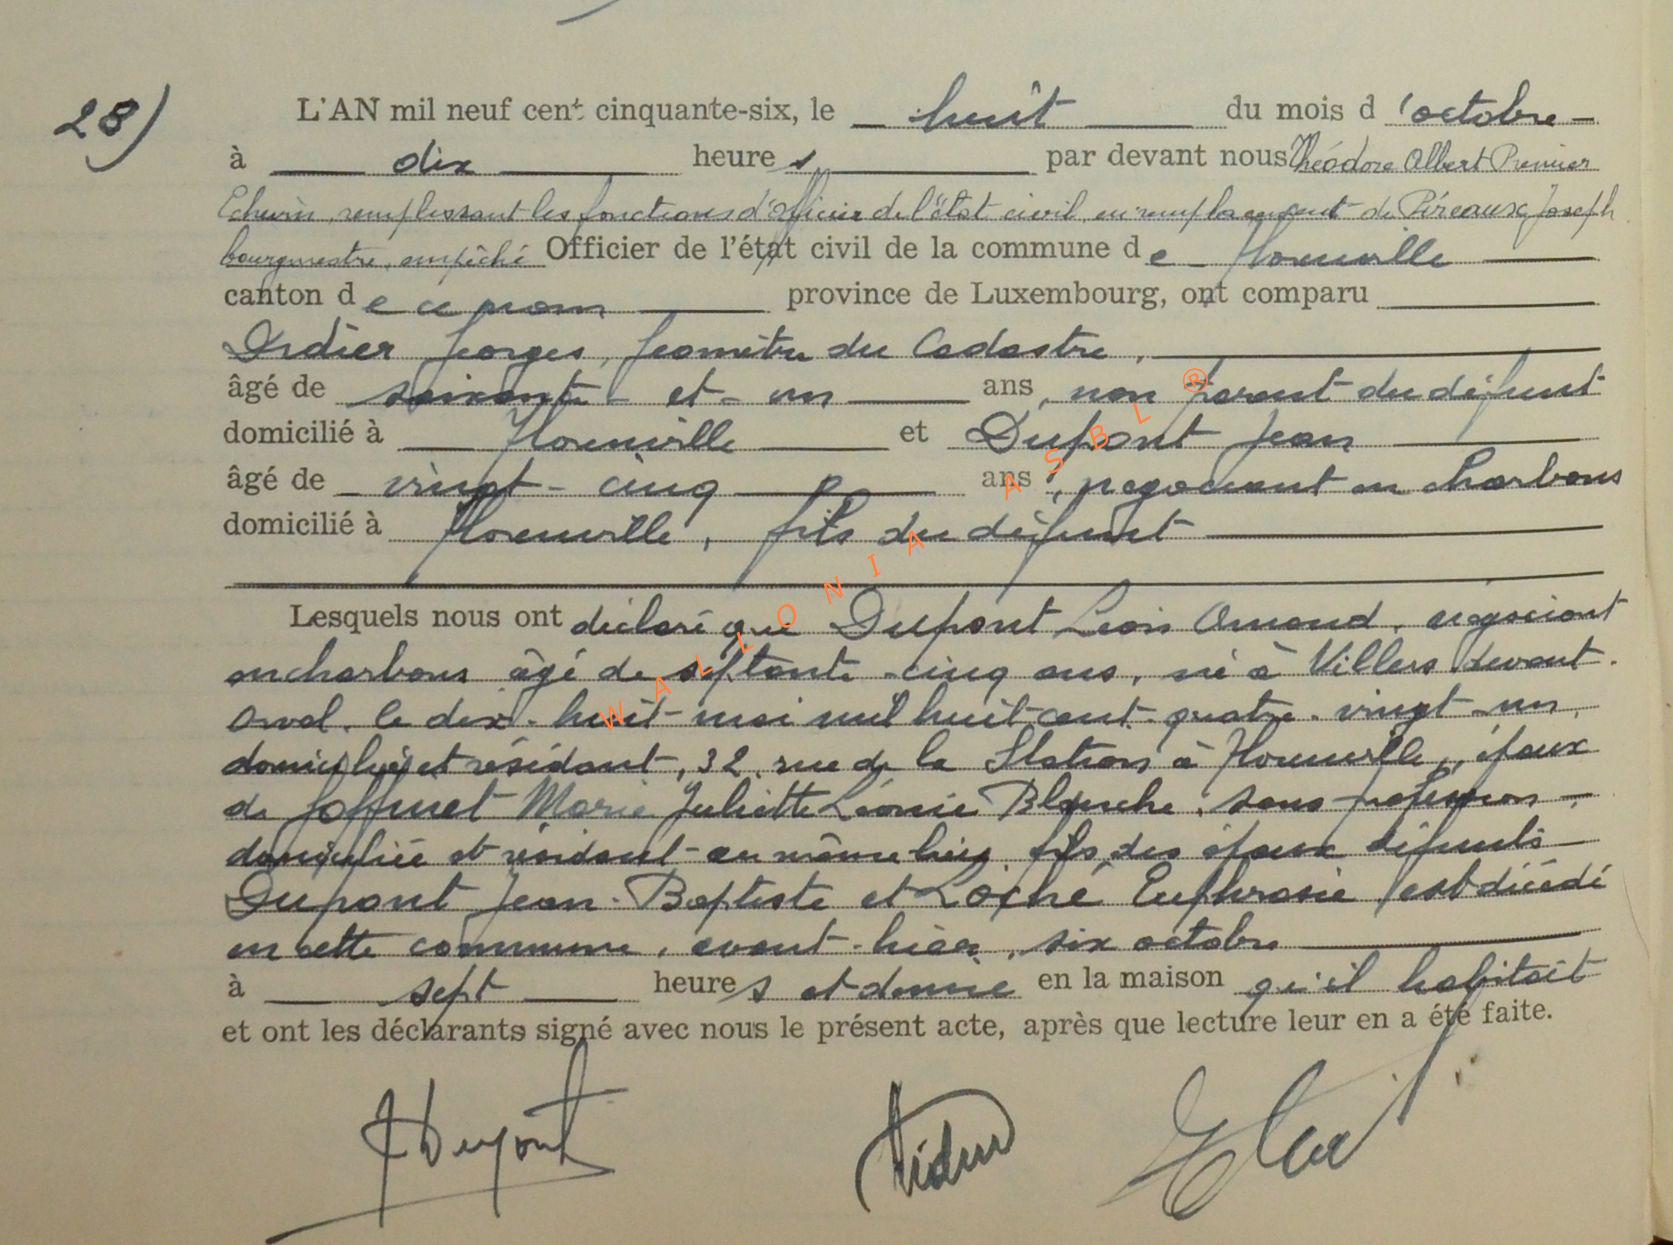 28)
L'AN mil neuf cent cinquante-six, le huit du mois d'octobre
à dix heures par devant nous Théodore Albert Premier
Echevin, remplissant les fonctions d'Officier de l'état civil, en remplacement de Pireaux Joseph
bourgmestre, empêché Officier de l'état civil de la commune de Florenville
canton de ce nom province de Luxembourg, ont comparu
Didier Georges, Géomètre du Cadastre,
âgé de soixante-et-un ans, non parent du défunt
domicilié à Florenville et Dupont Jean
âgé de vingt-cinq ans, négociant en charbons
domicilié à Florenville, fils du défunt
Lesquels nous ont déclaré que Dupont Léon Amand, négociant
en charbons âgé de septante-cinq ans, né à Villers devant
Orval, le dix-huit mai mil huit cent quatre-vingt-un,
domicilié et résidant, 32, rue de la Station à Florenville, époux
de Joffinet Marie Juliette Léonie Blanche, sans profession,
domiciliée et résidant au même lieu, fils des époux défunts
Dupont Jean-Baptiste et Loiché Euphrasie, est décédé
en cette commune, avant-hier, six octobre
à sept heures et demie en la maison qu'il habitait
et ont les déclarants signé avec nous le présent acte, après que lecture leur en a été faite.
JDupont Didier
WALLONIA ASBL ®